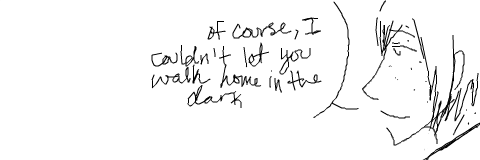 of course, I
couldn't let you
walk home in the
dark